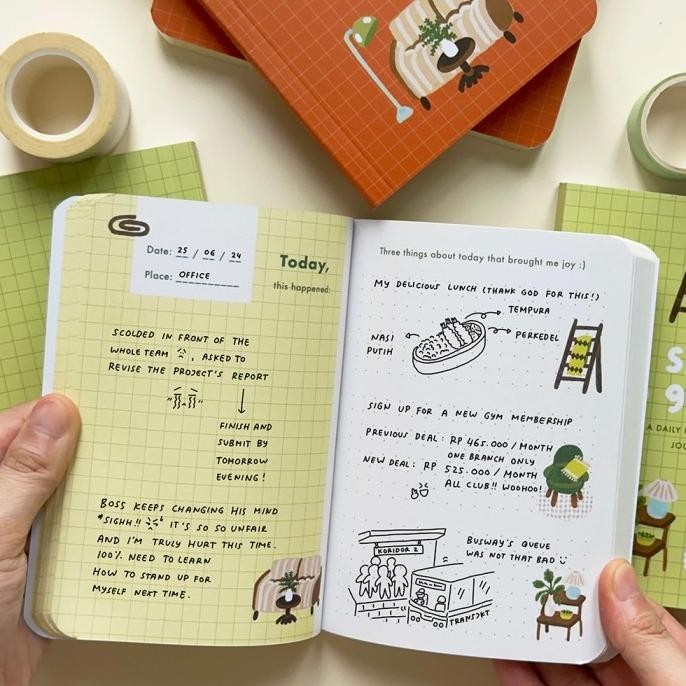 Date: 25 / 06 / 24
Place: OFFICE
Today,
this happened:
SCOLDED IN FRONT OF THE
WHOLE TEAM , ASKED TO
REVISE THE PROJECT'S REPORT
FINISH AND
SUBMIT BY
TOMORROW
EVENING!
BOSS KEEPS CHANGING HIS MIND
*SIGHH!! IT'S SO SO UNFAIR
AND I'M TRULY HURT THIS TIME.
100% NEED TO LEARN
HOW TO STAND UP FOR
MYSELF NEXT TIME.
Three things about today that brought me joy :)
MY DELICIOUS LUNCH (THANK GOD FOR THIS!)
TEMPURA
PERKEDEL
NASI
PUTIH
SIGN UP FOR A NEW GYM MEMBERSHIP
PREVIOUS DEAL: RP 465.000/MONTH
ONE BRANCH ONLY
NEW DEAL: RP 525.000/MONTH
ALL CLUB!! WOOHOO!
KORIDOR 2
BUSWAY'S QUEUE
WAS NOT THAT BAD
TRANSJKT
S
9
A DAILY
JOU